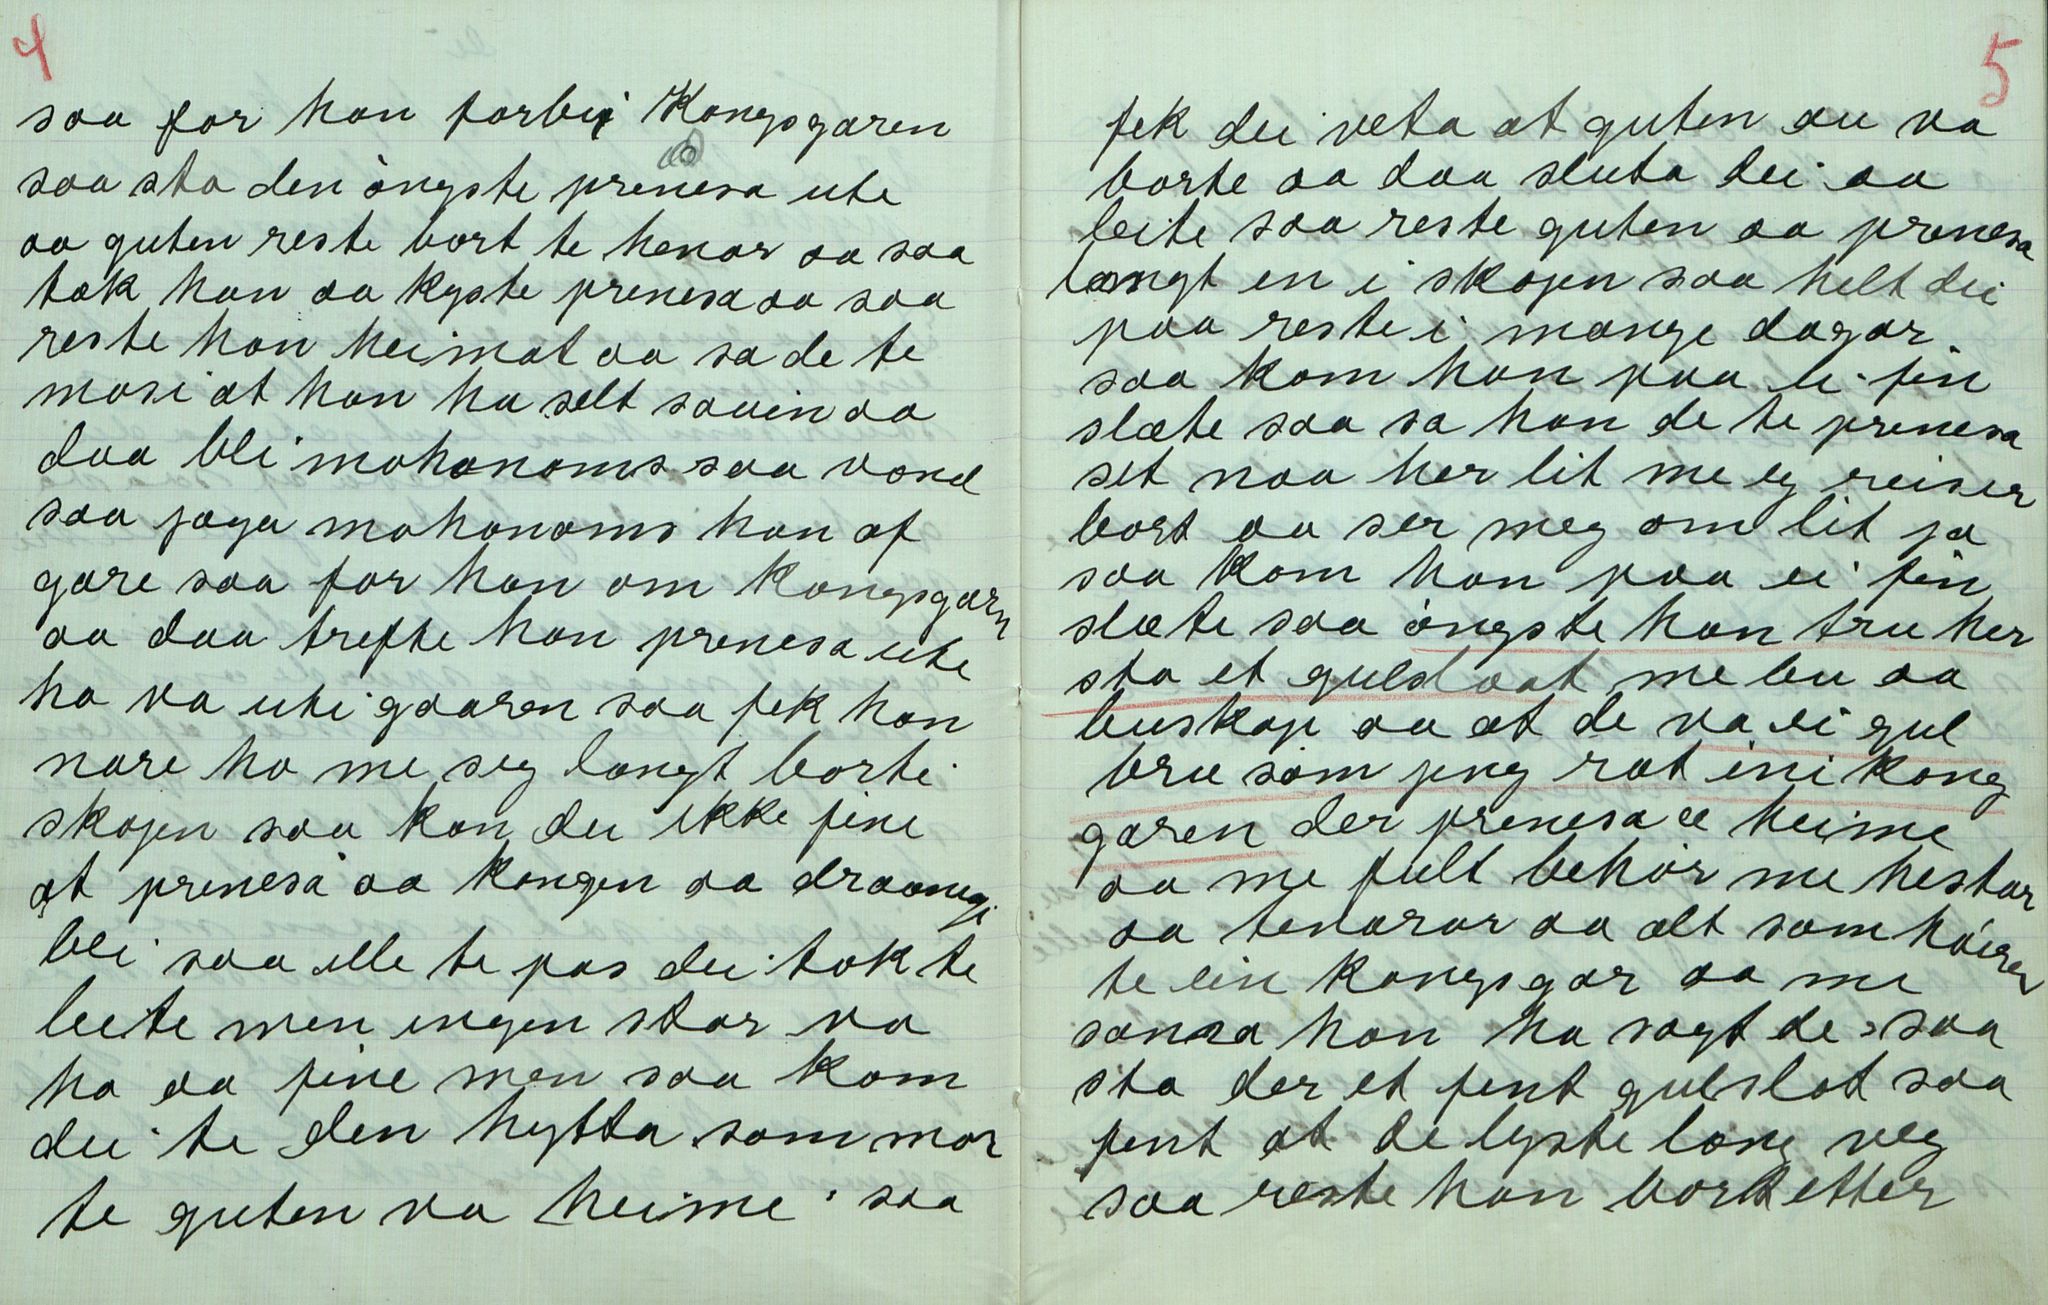 4
saa for han forbi Kongsgaren
saa sto den òngste prensesa ute
aa guten reste bort te henar aa saa
tok han aa kyste prenesa aa saa
reste han heimat aa sa de te
mosi at han ha selt sauin aa
daa blei mohanoms saa vond
saa jaga mohanoms han af
gare saa for han om Kongsgarn
aa daa trefte han prenesa ute
ho va uti gaaren saa fek han
nare ho me seg langt borti
skojen saa kan dei ikke fine
at prenesa aa kongen aa draanengi
blei saa ille te pas dei tok te
leite men ingen star va
ho aa fine men saa kom
dei te den hytta som mor
te guten va heime saa
5
fek dei veta at guten au va
borte aa daa sluta dei aa
leite saa reste guten aa prenesa
langt en i skojen saa helt dei
paa reste i mange dagar
saa kom han paa ei fin
slæte saa sa han de te prenesa
set naa her lit me eg reiser
bort aa ser meg om lit ja
saa kom han paa ei fin
slæte saa òngste han tru her
sto et guldslaat me bu aa
buskap aa at de va ei gul
bru som jing rat ini kong
garen der prenesa æ heime
aa me fult behòr me hestar
aa tenarar aa alt som hòirer
te ein kongsgar aa me
sama han ha sagt de saa
sto der et fent gulslot saa
fent at de lyste lang veg
saa reste han bort etter